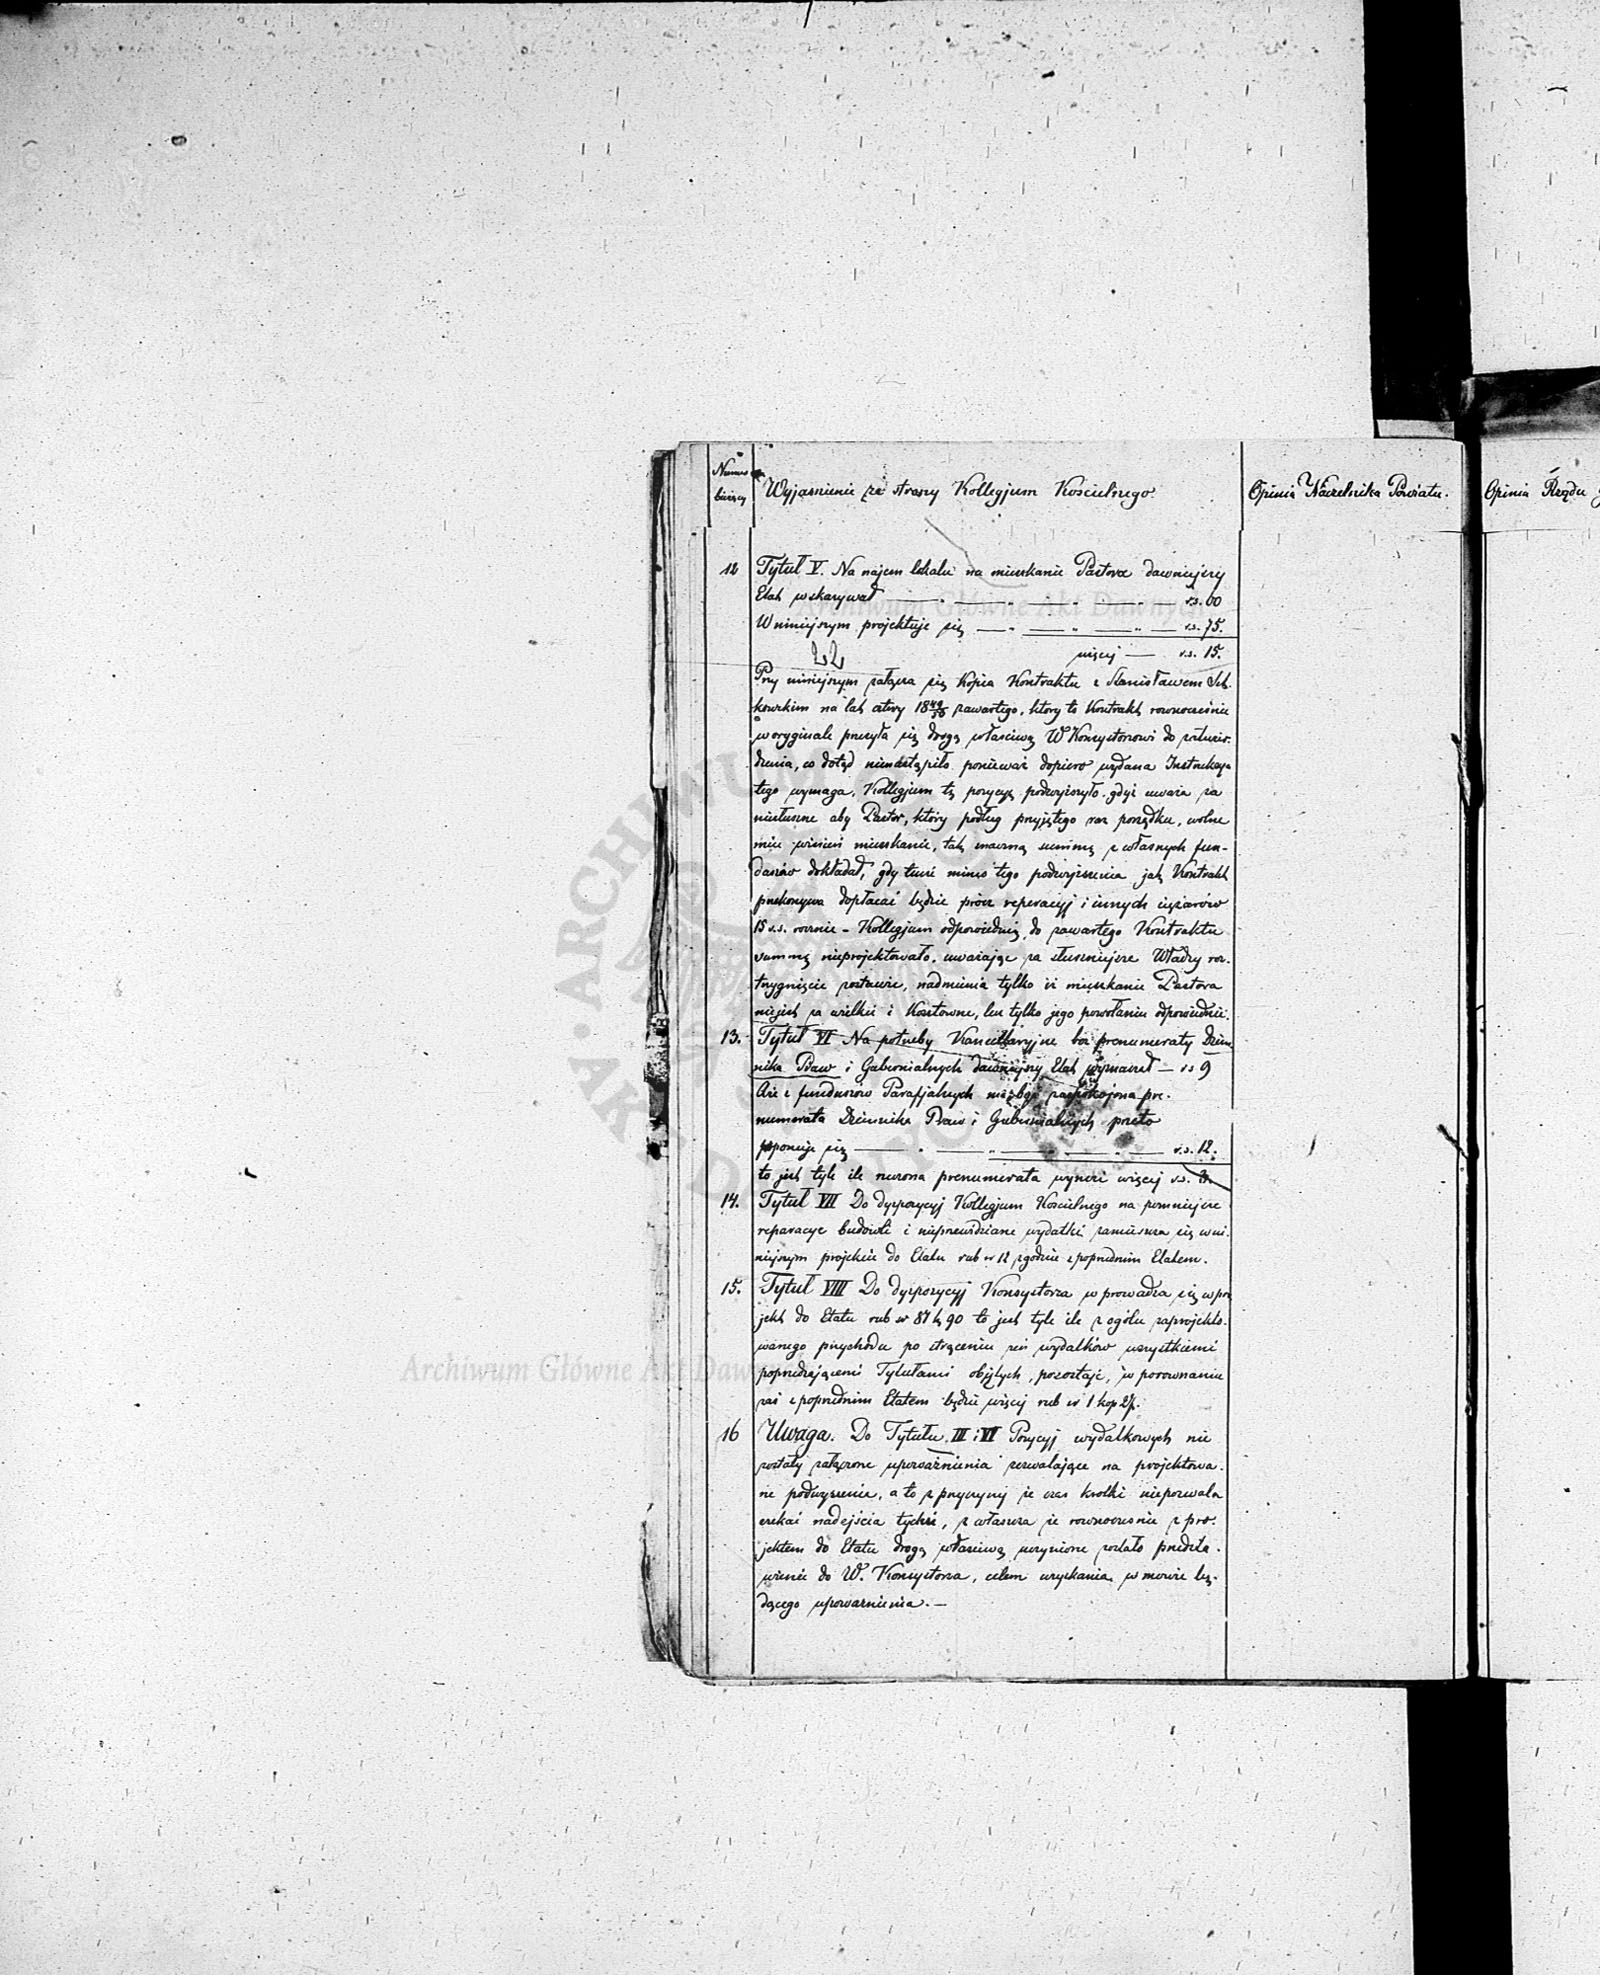 Numer
bieżący
Wyjasnienie ze strony Kollegjum Koscielnego.
Opinia Naczelnika Powiatu.
Opinia Rządu
12 Tytuł V. Na najem lokalu na mieszkanie Pastora dawniejszy
Etat wskazywał r.s. 60
W niniejszym projektuje się r.s. 75.
więcej r.s. 15.
Przy niniejszym załącza się Kopia Kontraktu z Stanisławem
na lat cztery zawartego, ktory to Kontrakt rownocześnie
w oryginale przesyła się drogą własciwą W Konsystorowi do zatwier-
dzenia, co dotąd nienastąpiło ponieważ dopiero wydana Instrukcya
tego wymaga, Kollegjum tę pozycyę podwyższyło gdyż uważa za
niesłuszne aby Pastor, który podług przyjętego raz porządku, wolne
mieć winien mieszkanie, tak znaczną summę z własnych fun-
duszów dokładał, gdy mimo tego podwyższenia jak Kontrakt
przekonywa dopłacać będzie prócz reperacyj i innych ciężarów
15 r.s. rocznie - Kollegjum odpowiednią do zawartego Kontraktu
summę nieprojektowało, uważając za słuszniejsze Władzy roz-
trzygnięcie zostawić, nadmienia tylko iż mieszkanie Pastora
niejest za wielkie i Kosztowne, lecz tylko jego powołaniu odpowiednie.
13. Tytuł VI Na potrzeby Kancellaryjne bez prenumeraty Dzien-
nika Praw i Gubernialnych dawniejszy Etat wyznaczał — r s 9
Aże z funduszów Parafjalnych ma być zaspokojona pre-
numerata Dziennika Praw i Gubernialnych przeto
proponuje się r.s. 12.
to jest tyle ile roczna prenumerata wynosi więcej r.s. 3.
14. Tytuł VII Do dyspozycyj Kollegjum Koscielnego na pomniejsze
reparacye budowli i nieprzewidziane wydatki zamieszcza się w ni-
niejszym projekcie do Etatu rub sr 12 zgodnie z poprzednim Etatem.
15. Tytuł VIII Do dyspozycyj Konsystorza wprowadza się w pro
jekt do Etatu rub sr 87 k 90 to jest tyle ile z ogółu zaprojekto-
wanego przychodu po strąceniu zeń wydatków wszystkiemi
poprzedzającemi Tytułami objętych, pozostaje, w porownaniu
zaś z poprzednim Etatem będzie więcej rub sr 1 kop
16 Uwaga. Do Tytułu III i VI Pozycyj wydatkowych nie
zostały załączone upoważnienia zezwalające na projektowa-
ne podwyższenie, a to z przyczyny że czas krotki niepozwala
czekać nadejścia tychże, z właszcza że rownoczesnie z pro-
jektem do Etatu drogą właściwą uczynione zostało przedsta-
wienie do W. Konsystorza, celem uzyskania w mowie bę-
dącego upoważnienia. —
Archiwum Główne Akt Dawnych
Archiwum Główne Akt Dawnych